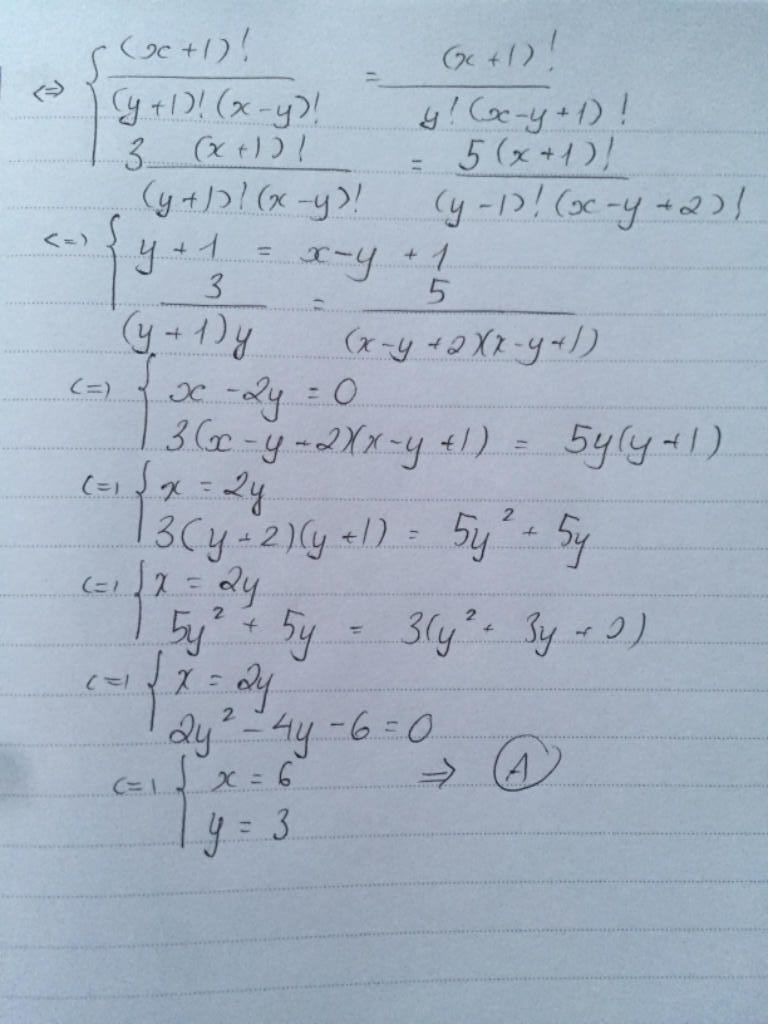 ⇔ { (x+1)! / (y+1)!(x-y)! = (x+1)! / y!(x-y+1)!
3 (x+1)! / (y+1)!(x-y)! = 5(x+1)! / (y-1)!(x-y+2)!
<=> { y+1 = x-y+1
3 / (y+1)y = 5 / (x-y+2)(x-y+1)
<=> { x-2y = 0
3(x-y+2)(x-y+1) = 5y(y+1)
<=> { x = 2y
3(y+2)(y+1) = 5y² + 5y
<=> { x = 2y
5y² + 5y = 3(y² + 3y + 2)
<=> { x = 2y
2y² - 4y - 6 = 0
<=> { x = 6 ⇒ A
y = 3